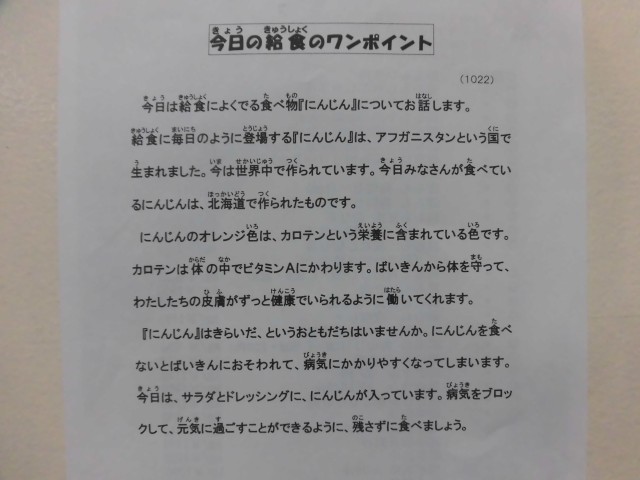 今日の給食のワンポイント
（1022）
今日は給食によくでる食べ物『にんじん』についてお話します。
給食に毎日のように登場する『にんじん』は、アフガニスタンという国で
生まれました。今は世界中で作られています。今日みなさんが食べてい
るにんじんは、北海道で作られたものです。
にんじんのオレンジ色は、カロテンという栄養に含まれている色です。
カロテンは体の中でビタミンAにかわります。ばいきんから体を守って、
わたしたちの皮膚がずっと健康でいられるように働いてくれます。
『にんじん』はきらいだ、というおともだちはいませんか。にんじんを食べ
ないとばいきんにおそわれて、病気にかかりやすくなってしまいます。
今日は、サラダとドレッシングに、にんじんが入っています。病気をブロッ
クして、元気に過ごすことができるように、残さずに食べましょう。